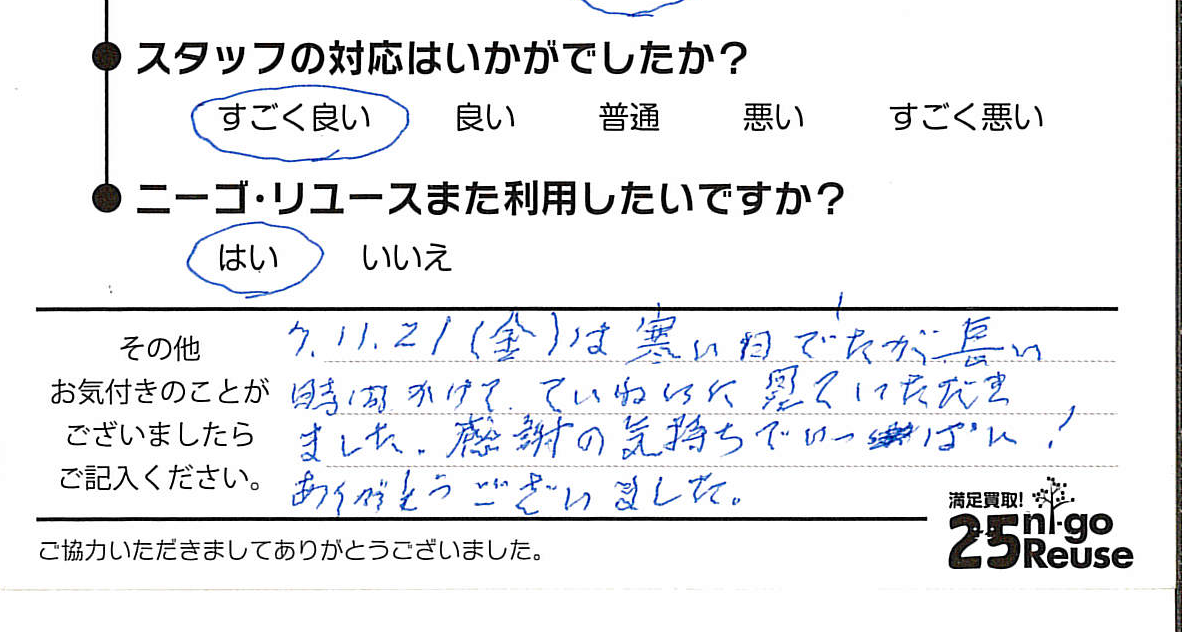 スタッフの対応はいかがでしたか？
すごく良い 良い 普通 悪い すごく悪い
ニーゴ・リユースまた利用したいですか？
はい いいえ
その他
お気付きのことが
ございましたら
ご記入ください。
7.11.21(金)は寒い日でしたが長い
時間かけて、ていねいに見ていただき
ました。感謝の気持ちでいっぱい!
ありがとうございました。
満足買取!
25 ni-go
Reuse
ご協力いただきましてありがとうございました。